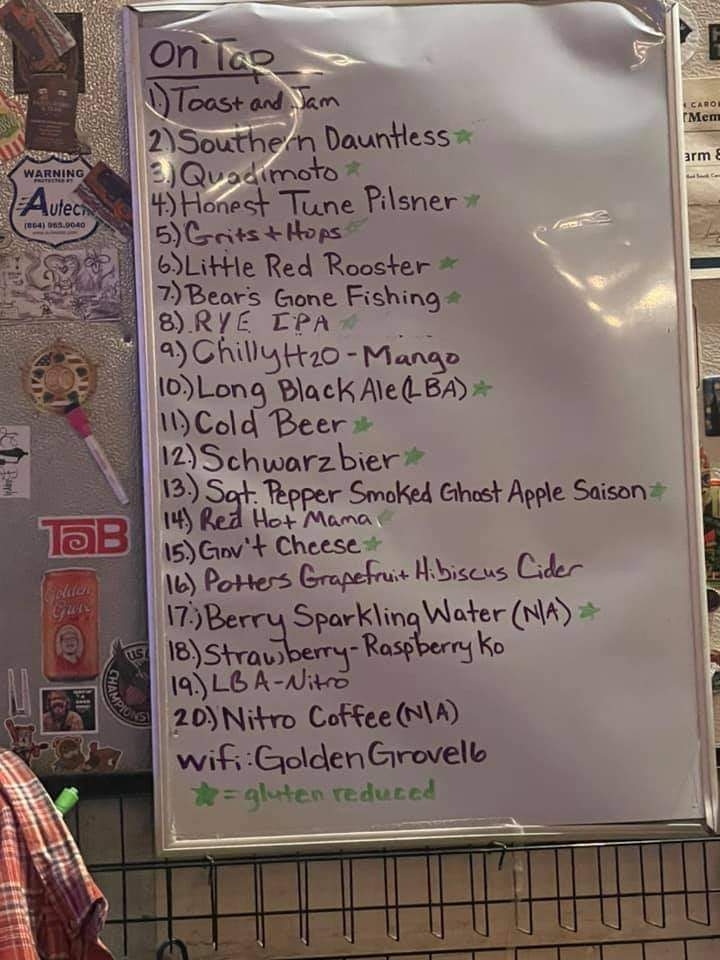 On Tap
1.) Toast and Jam
2.) Southern Dauntless ★
3.) Quadimoto ★
4.) Honest Tune Pilsner ★
5.) Grits + Hops ★
6.) Little Red Rooster ★
7.) Bear's Gone Fishing ★
8.) RYE IPA ★
9.) Chilly H20 - Mango
10.) Long Black Ale (LBA) ★
11.) Cold Beer ★
12.) Schwarzbier ★
13.) Sgt. Pepper Smoked Ghost Apple Saison ★
14.) Red Hot Mama ★
15.) Gov't Cheese ★
16.) Potters Grapefruit Hibiscus Cider
17.) Berry Sparkling Water (N/A) ★
18.) Strawberry-Raspberry Ko
19.) LBA-Nitro
20.) Nitro Coffee (N/A)
wifi: GoldenGrove16
★ = gluten reduced
WARNING
PROTECTED BY
Autec
(864) 963.9040
TAB
Golden
Grove
US
CHAMPIONS
CARO
Mem
arm &